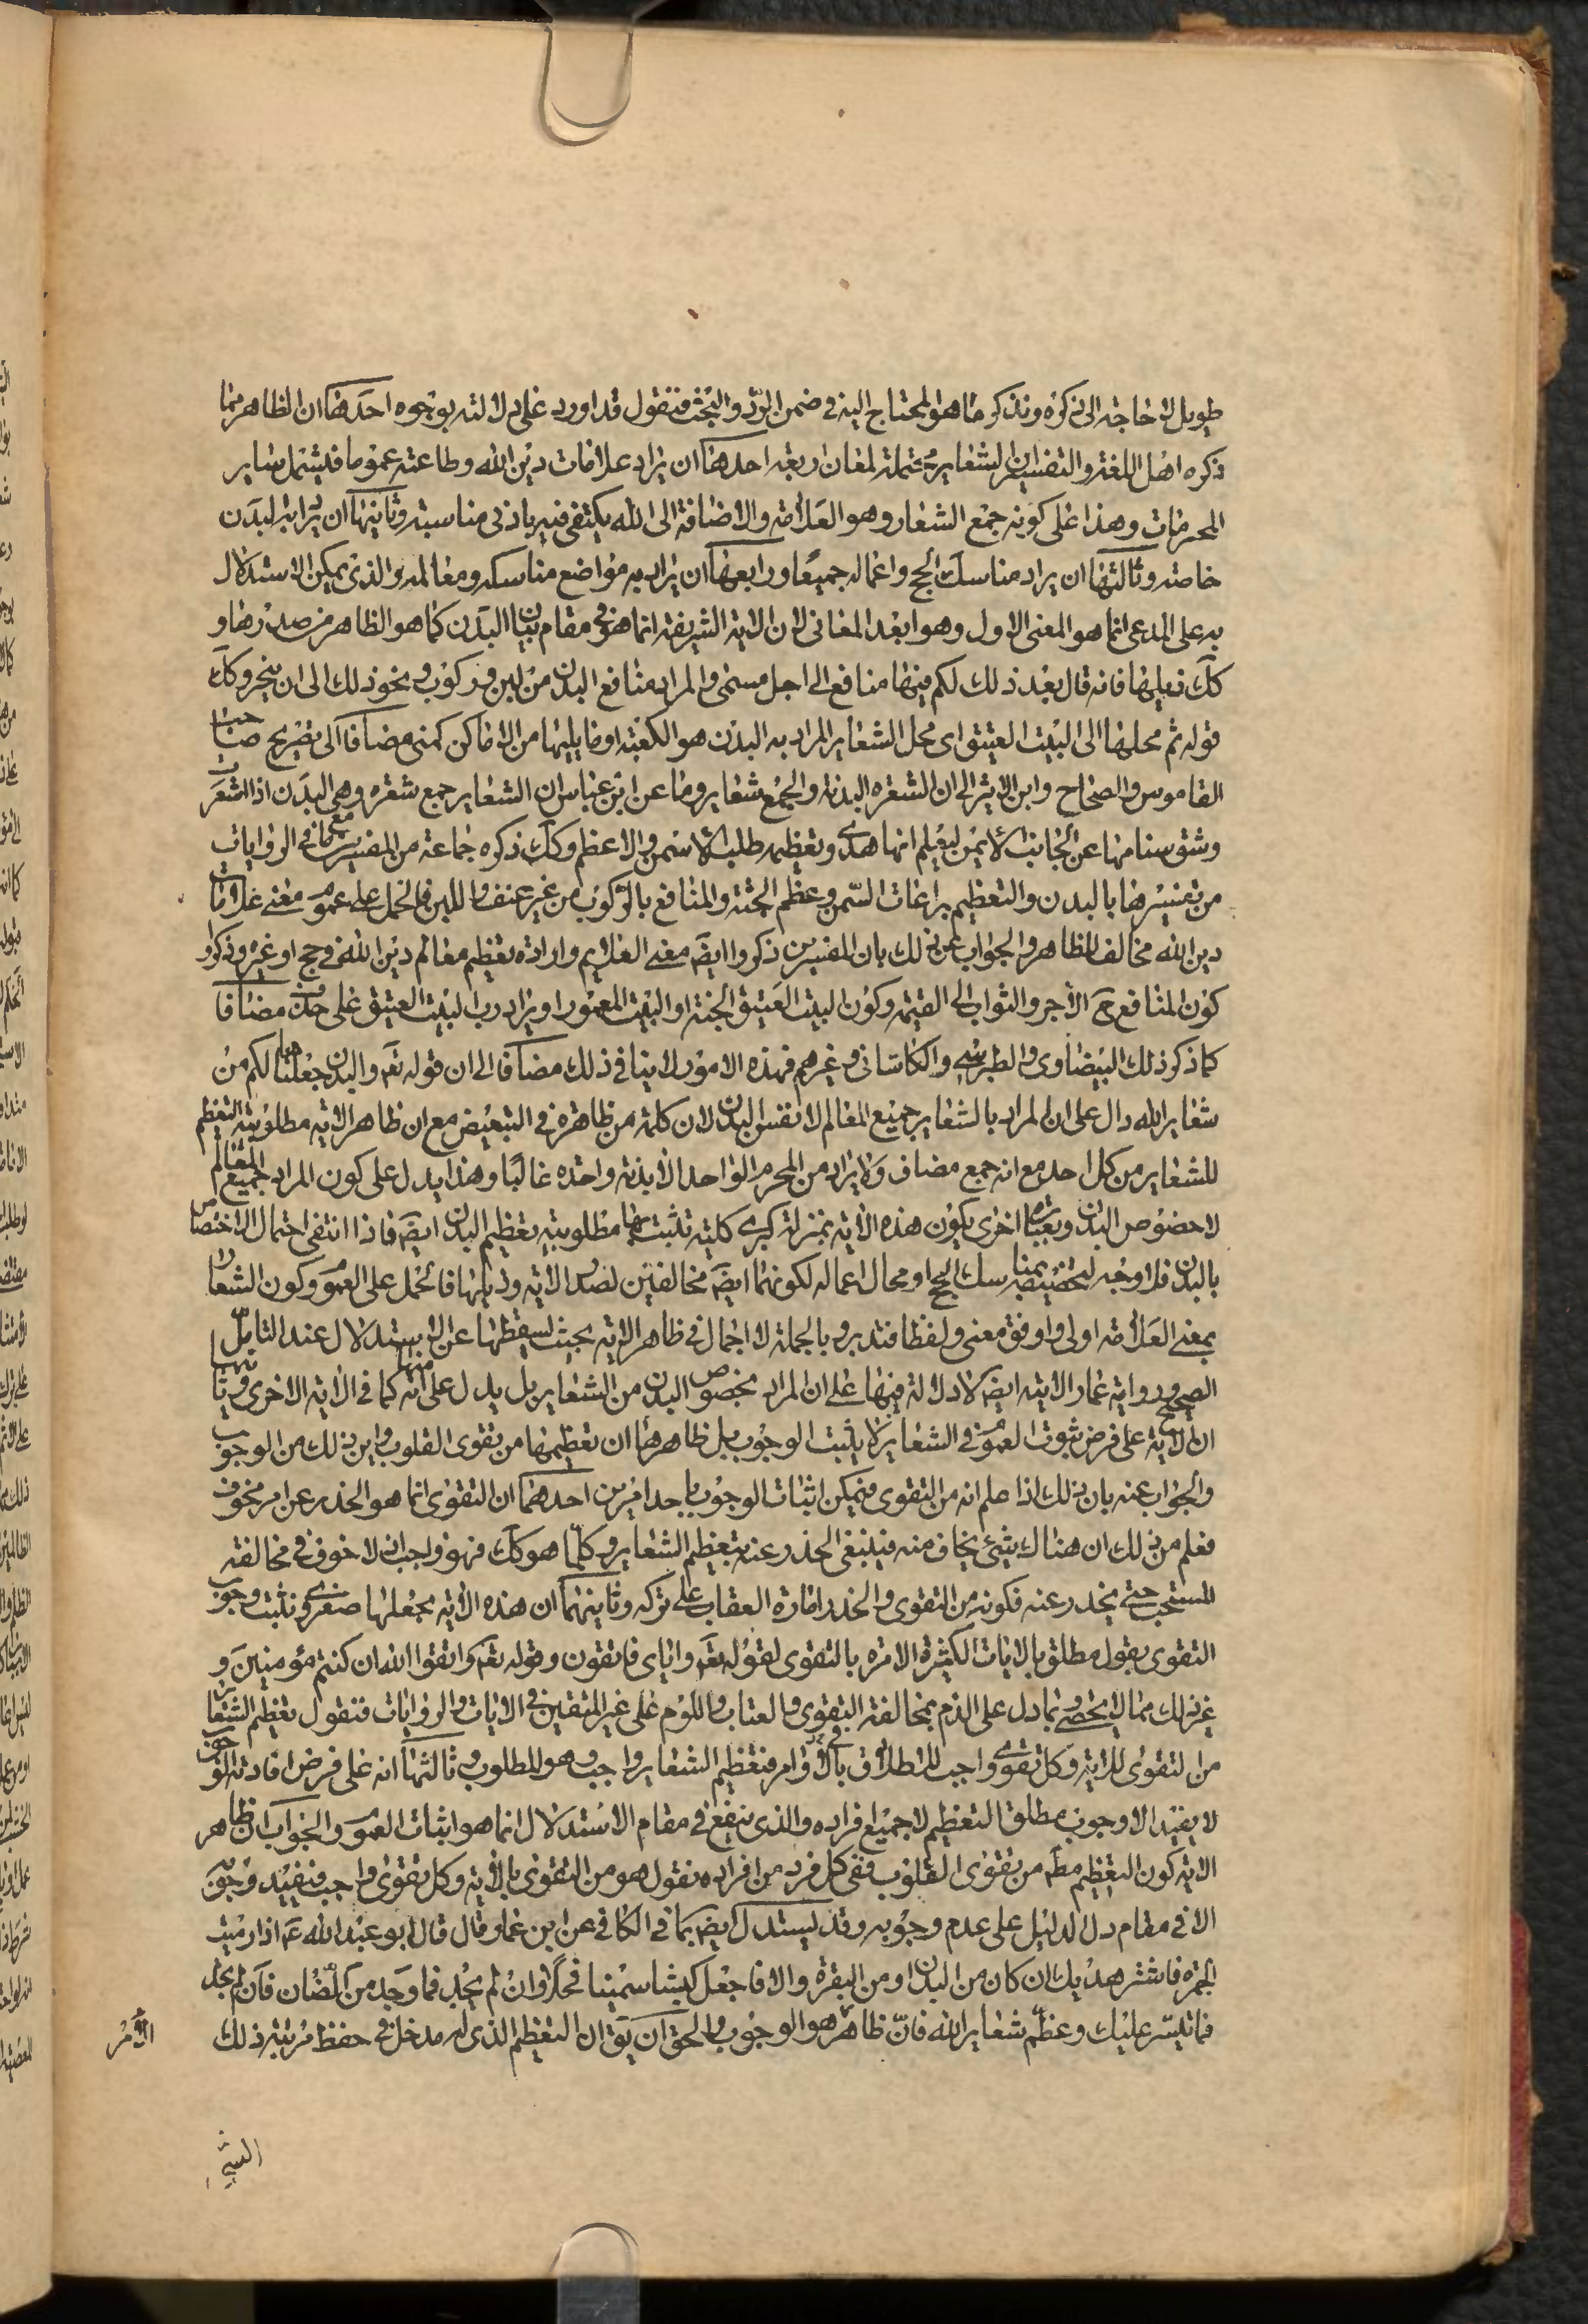 طويل لا حاجة الى ذكره ونذكر ما هو المحتاج اليه في ضمن الردّ والبحث فنقول قد اورد على دلالته بوجوه احدها ان الظاهر مما
ذكره اهل اللغة والتفسير ان الشعاير محتملة لمعان اربعة احدها ان يراد علامات دين الله وطاعته عموما فيشمل ساير
المحرمات وهذا على كونه جمع الشعار وهو العلامة والاضافة الى الله يكتفى فيه بادنى مناسبة وثانيها ان يراد به البدن
خاصة وثالثها ان يراد مناسك الحج واعماله جميعًا ورابعها ان يراد به مواضع مناسكه ومعالمه والذى يمكن الاستدلال
به على المدعى انما هو المعنى الاول وهو ابعد المعانى لان الاية الشريفة انما هو في مقام بيان البدن كما هو الظاهر من صدرها و
كك ذيلها فانه قال بعد ذلك لكم فيها منافع الى اجل مسمى والمراد منافع البدن من لبن وركوب ونحو ذلك الى ان ينحر وكك
قوله ثم محلها الى البيت العتيق اى محل الشعاير المراد به البدن هو الكعبة او ما يليها من الاماكن كمنى مضافا الى تصريح صاحب
القاموس والصحاح وابن الاثير الى ان الشعره البدنة والجمع شعاير وما عن ابن عباس ان الشعاير جمع شعره وهى البدن اذا اشعرت
وشق سنامها عن الجانب الايمن ليعلم انها هدى وتعظيمه طلب الاسمن والاعظم وكك ذكره جماعة من المفسرين مع ما في الروايات
من تفسيرها بالبدن والتعظيم براعات السّمن وعظم الجثة والمنافع بالركوب من غير عنف واللبن فالحمل على عموم معنى علامات
دين الله مخالف للظاهر والجواب عن ذلك بان المفسرين ذكروا ايضَ معنى العلايم وارادة تعظيم معالم دين الله في حج او غيره وذكروا
كون المنافع حَ الاجر والثواب الى القيمة وكون البيت العتيق الجنة او البيت المعمور او يراد رب البيت العتيق على حذف مضافا
كما ذكر ذلك البيضاوى والطبرسى والكاشانى وغيرهم فهذه الامور لا ينافي ذلك مضافا الى ان قوله تعَ والبدن جعلناها لكم من
شعاير الله دال على ان المراد بالشعاير جميع المعالم لا نفس البدن لان كلمة من ظاهرة في التبعيض مع ان ظاهر الاية مطلوبية التعظيم
للشعاير من كل احد مع انه جمع مضاف ولا يراد من المحرم الواحد الا بدنة واحدة غالبًا وهذا يدل على كون المراد جميع المعالم
لا خصوص البدن وبعبارة اخرى يكون هذه الاية بمنزلة كبرى كلية تثبت بها مطلوبية تعظيم البدن ايضَ فاذا انتفى احتمال الاختصاص
بالبدن فلا وجه لتخصيصه بمناسك الحج او محال اعماله لكونهما ايضَ مخالفين لصدر الاية وذيلها فالحمل على العموم وكون الشعار
بمعنى العلامة اولى واوفق معنى ولفظا فتدبر وبالجملة لا اجمال في ظاهر الاية بحيث يسقطها عن الاستدلال عند التامل
الصحيح ورواية عمار الاتية ايضَ لا دلالة فيها على ان المراد بخصوص البدن من الشعاير بل يدل على انه منها كما في الاية الاخرى وثانيها
ان الاية على فرض ثبوت العموم في الشعاير لا يثبت الوجوب بل ظاهرها ان تعظيمها من تقوى القلوب واين ذلك من الوجوب
والجواب عنه بان ذلك اذا علم انه من التقوى فيمكن اثبات الوجوب باحد امرين احدهما ان التقوى انما هو الحذر عن امر مخوف
فعلم من ذلك ان هناك شئ يخاف منه فينبغى الحذر عنه بتعظيم الشعاير وكلّما هو كك فهو واجب اذ لا خوف في مخالفة
المستحب حتى يحذر عنه فكونه من التقوى والحذر امارة العقاب على تركه وثانيهما ان هذه الاية يجعلها صغرى ونثبت وجوب
التقوى بقول مطلق بالايات الكثيرة الامرة بالتقوى لقوله تعَ واياى فاتقون وقوله تعَ واتقوا الله ان كنتم مؤمنين و
غير ذلك مما لا يحصى وبما دل على الذم بمخالفة التقوى والعتاب واللوم على غير المتقين في الايات والروايات فنقول تعظيم الشعاير
من التقوى للاية وكل تقوى واجب للاطلاق في الاوامر فتعظيم الشعاير واجب وهو المطلوب وثالثها انه على فرض افادته الوجوب
لا يفيد الا وجوب مطلق التعظيم لا جميع افراده والذى ينفع في مقام الاستدلال انما هو اثبات العموم والجواب ان ظاهر
الاية كون التعظيم مطَ من تقوى القلوب ففى كل فرد من افراده نقول هو من التقوى بالاية وكل تقوى واجب فيفيد وجوبه
الا في مقام دل الدليل على عدم وجوبه وقد يستدل ايضَ بما في الكافي عن ابن عمار قال قال ابو عبد الله عَ اذا رميت
الجمرة فاشتر هديك ان كان من البدن او من البقرة والا فاجعل كبشا سمينا فحلا وان لم يجد فما وجد من الضان فان لم يجد
فما تيسّر عليك وعظّم شعاير الله فانّ ظاهره هو الوجوب والحق ان يق ان التعظيم الذى له مدخل في حفظ مرتبة ذلك
الامر